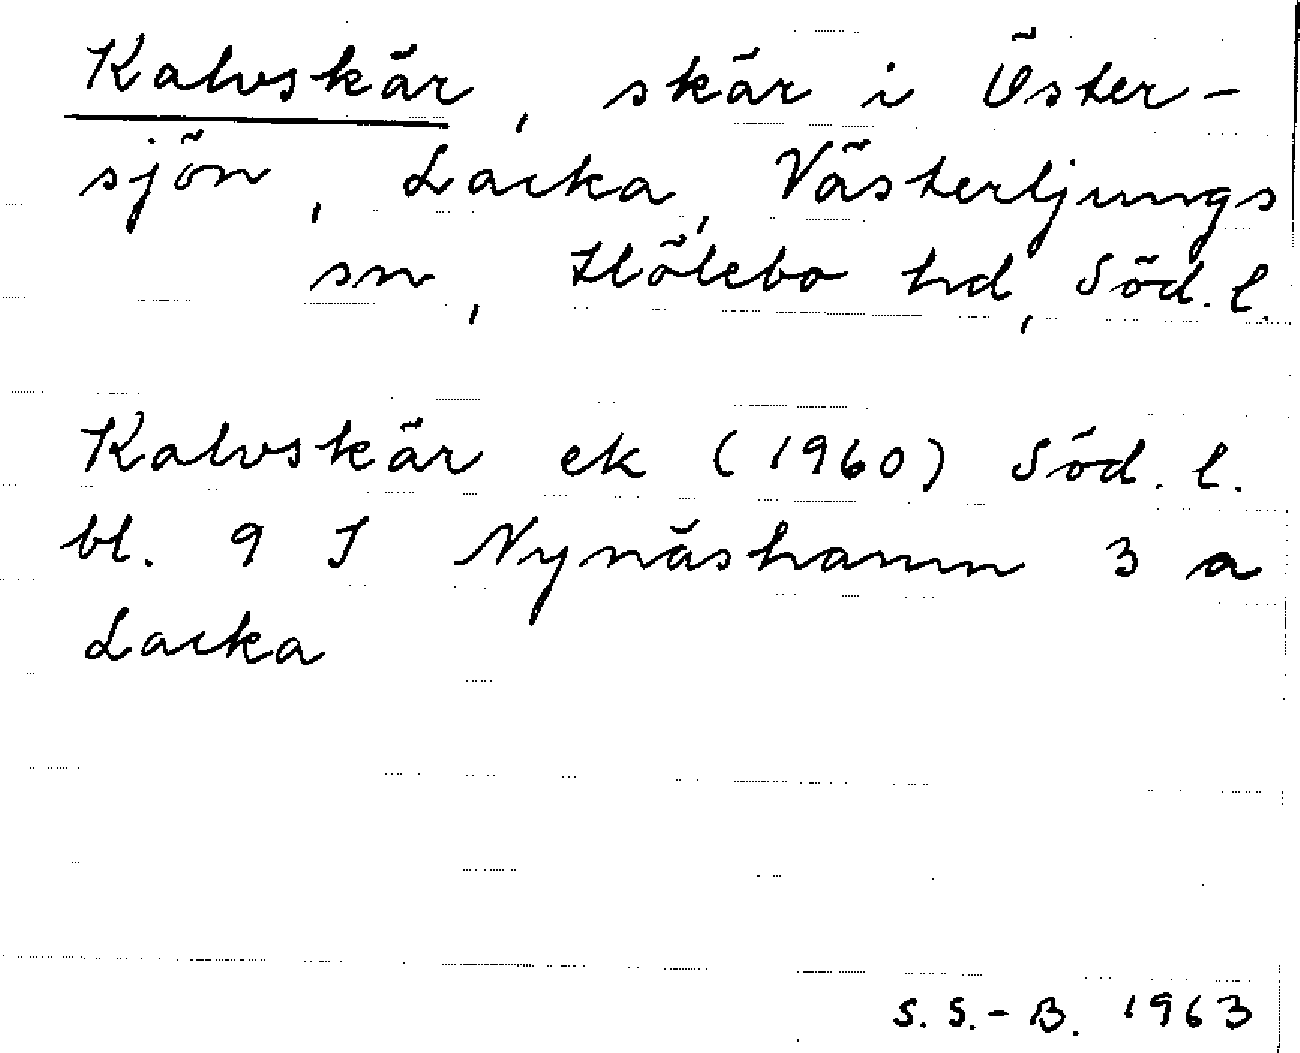 Kalvskär, skär i Öster-
sjön, Lacka, Västerljungs
sn, Hölebo hd, Söd. l.
Kalvskär ek (1960) Söd. l.
bl. 9 I Nynäshamn 3 a
Lacka
S. S.-B. 1963